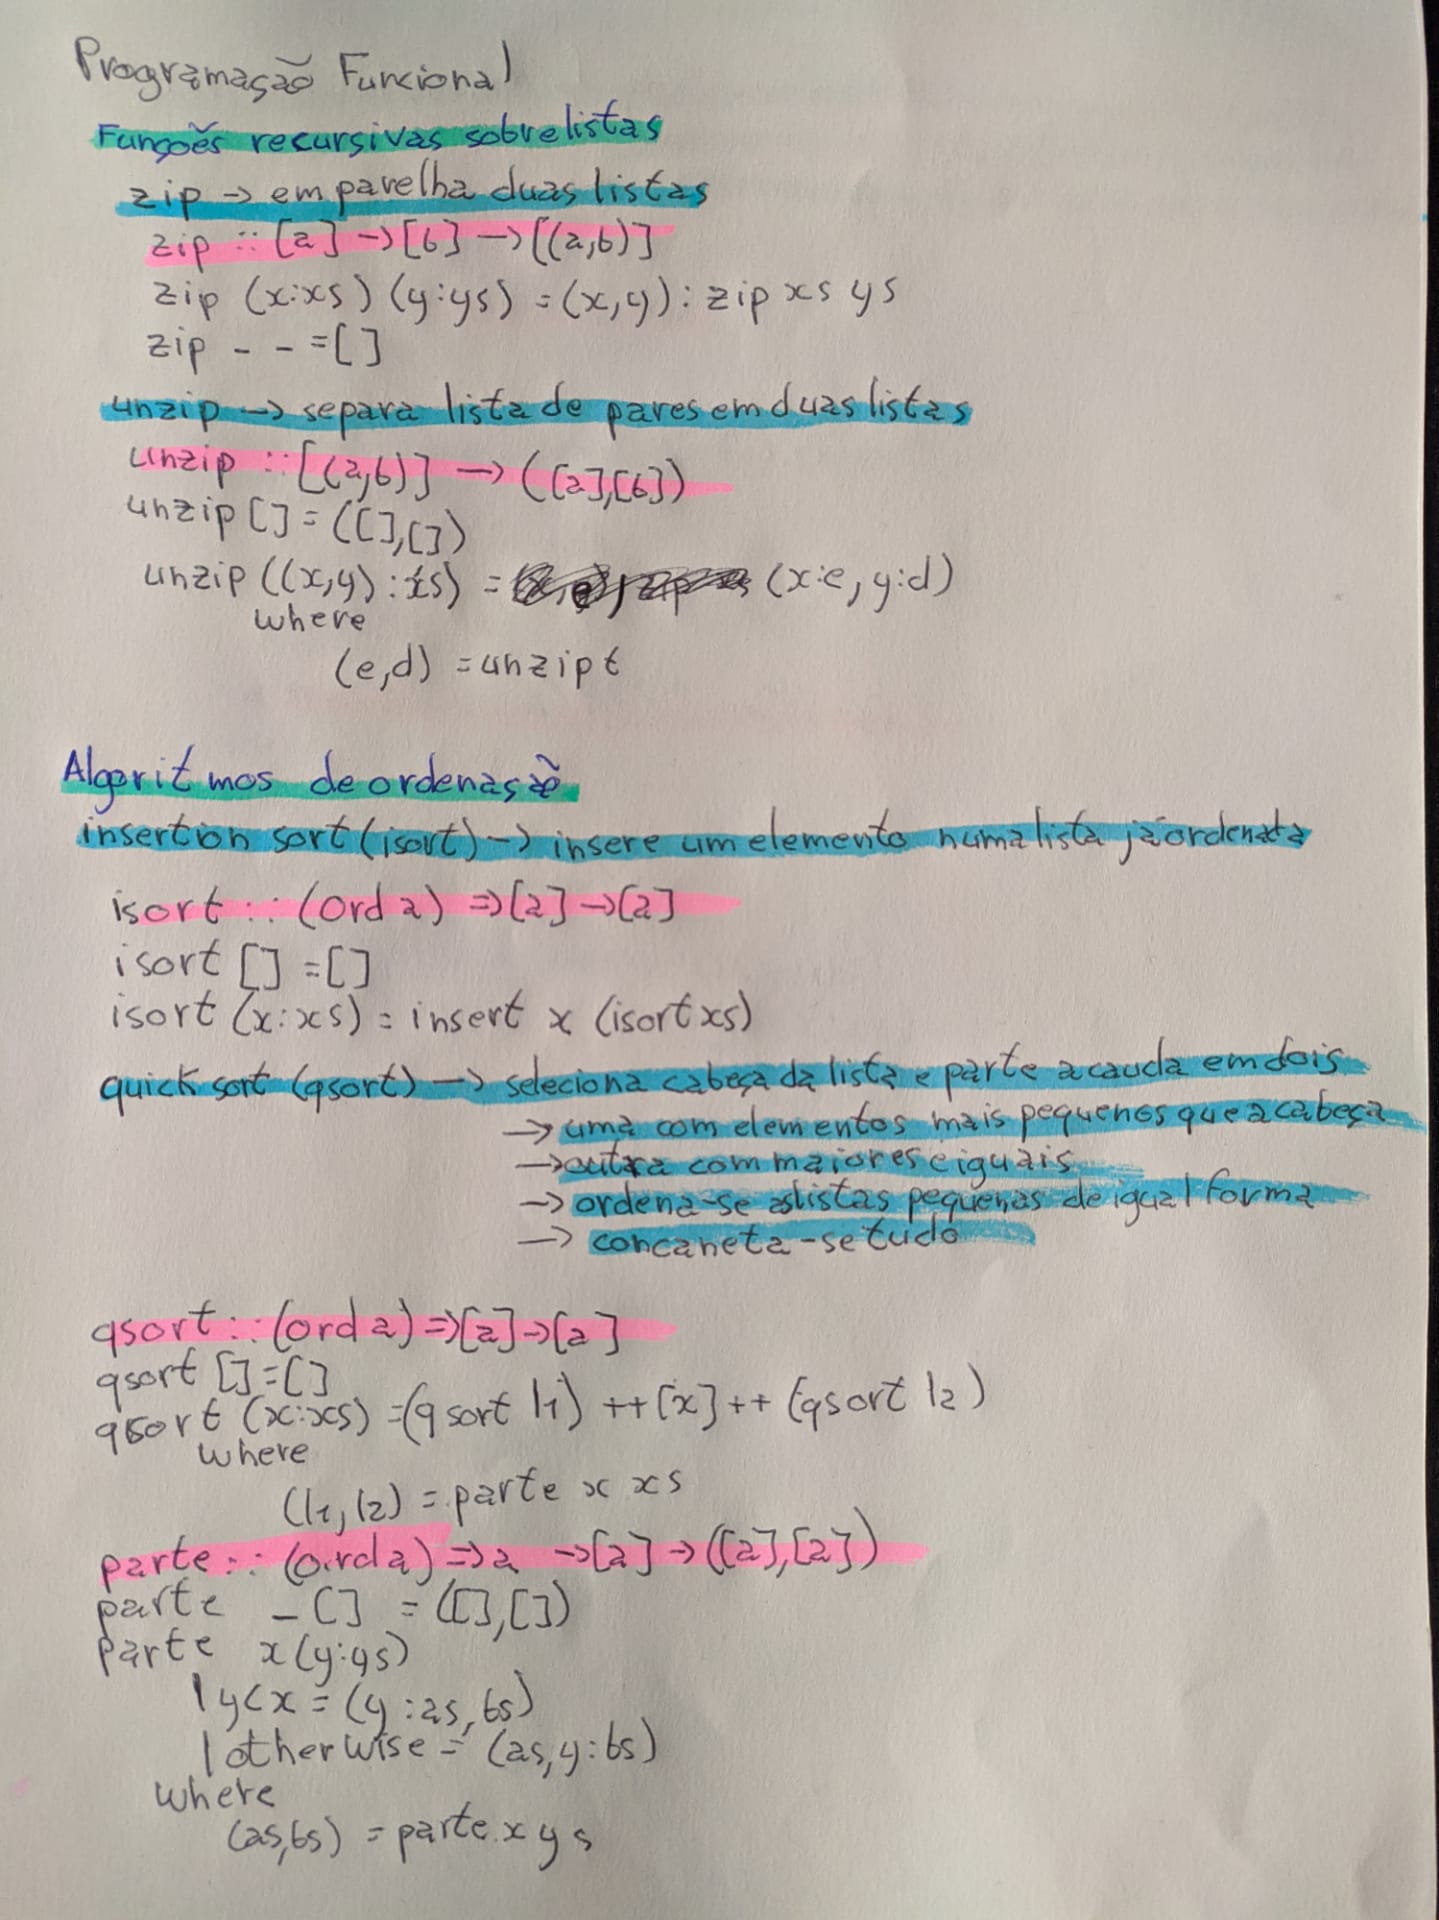 Programação Funcional
Funções recursivas sobre listas
zip → emparelha duas listas
zip :: [a] → [b] → [(a,b)]
zip (x:xs) (y:ys) = (x,y) : zip xs ys
zip _ _ = []
unzip → separa lista de pares em duas listas
unzip :: [(a,b)] → ([a],[b])
unzip [] = ([],[])
unzip ((x,y) : ts) = (x:e, y:d)
where
(e,d) = unzip t
Algoritmos de ordenação
insertion sort (isort) → insere um elemento numa lista já ordenata
isort :: (Ord a) => [a] → [a]
isort [] = []
isort (x:xs) = insert x (isort xs)
quick sort (qsort) → seleciona cabeça da lista e parte a cauda em dois
→ uma com elementos mais pequenos que a cabeça
→ outra com maiores e iguais
→ ordena-se as listas pequenas de igual forma
→ concaneta-se tudo
qsort :: (ord a) => [a] → [a]
qsort [] = []
qsort (x:xs) = (qsort l1) ++ [x] ++ (qsort l2)
where
(l1, l2) = parte x xs
parte :: (ord a) => a → [a] → ([a],[a])
parte _ [] = ([],[])
parte x (y:ys)
| y < x = (y : as, bs)
| otherwise = (as, y : bs)
where
(as,bs) = parte x ys